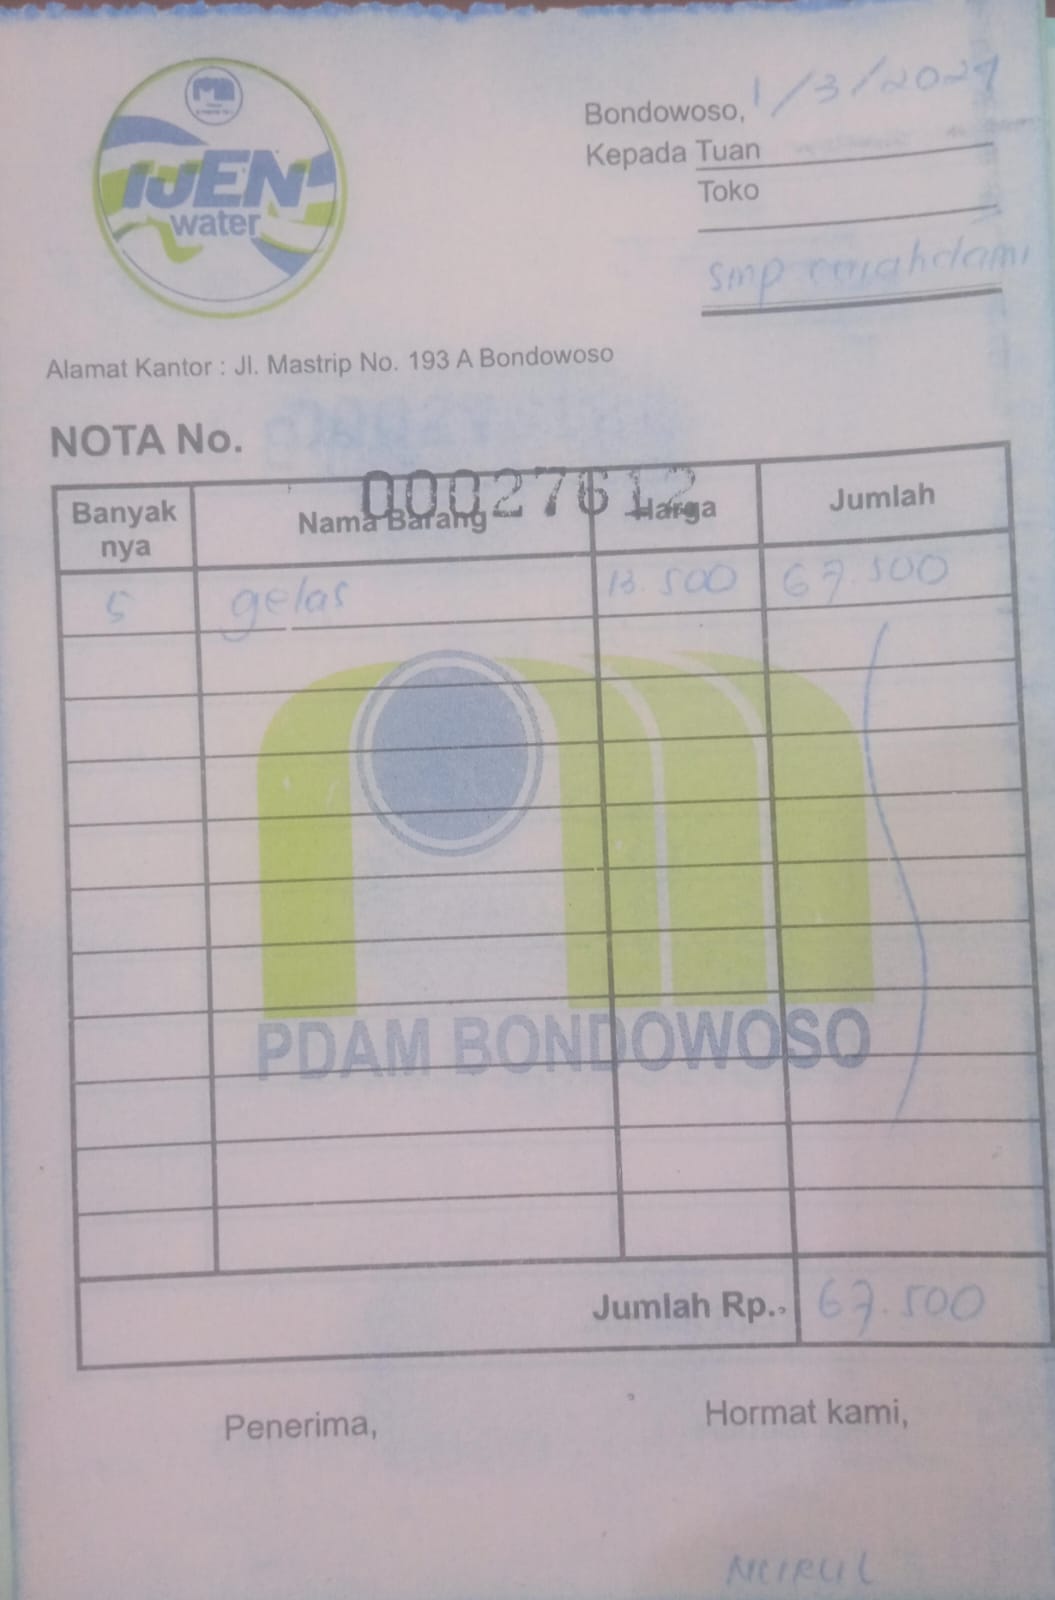 IJEN
water
Bondowoso, 1/3/2021
Kepada Tuan
Toko
smp
Alamat Kantor : Jl. Mastrip No. 193 A Bondowoso
NOTA No.
00027612
Banyak nya Nama Barang Harga Jumlah
5 gelas 13.500 67.500
PDAM BONDOWOSO
Jumlah Rp.. 67.500
Penerima, Hormat kami,
NURUL